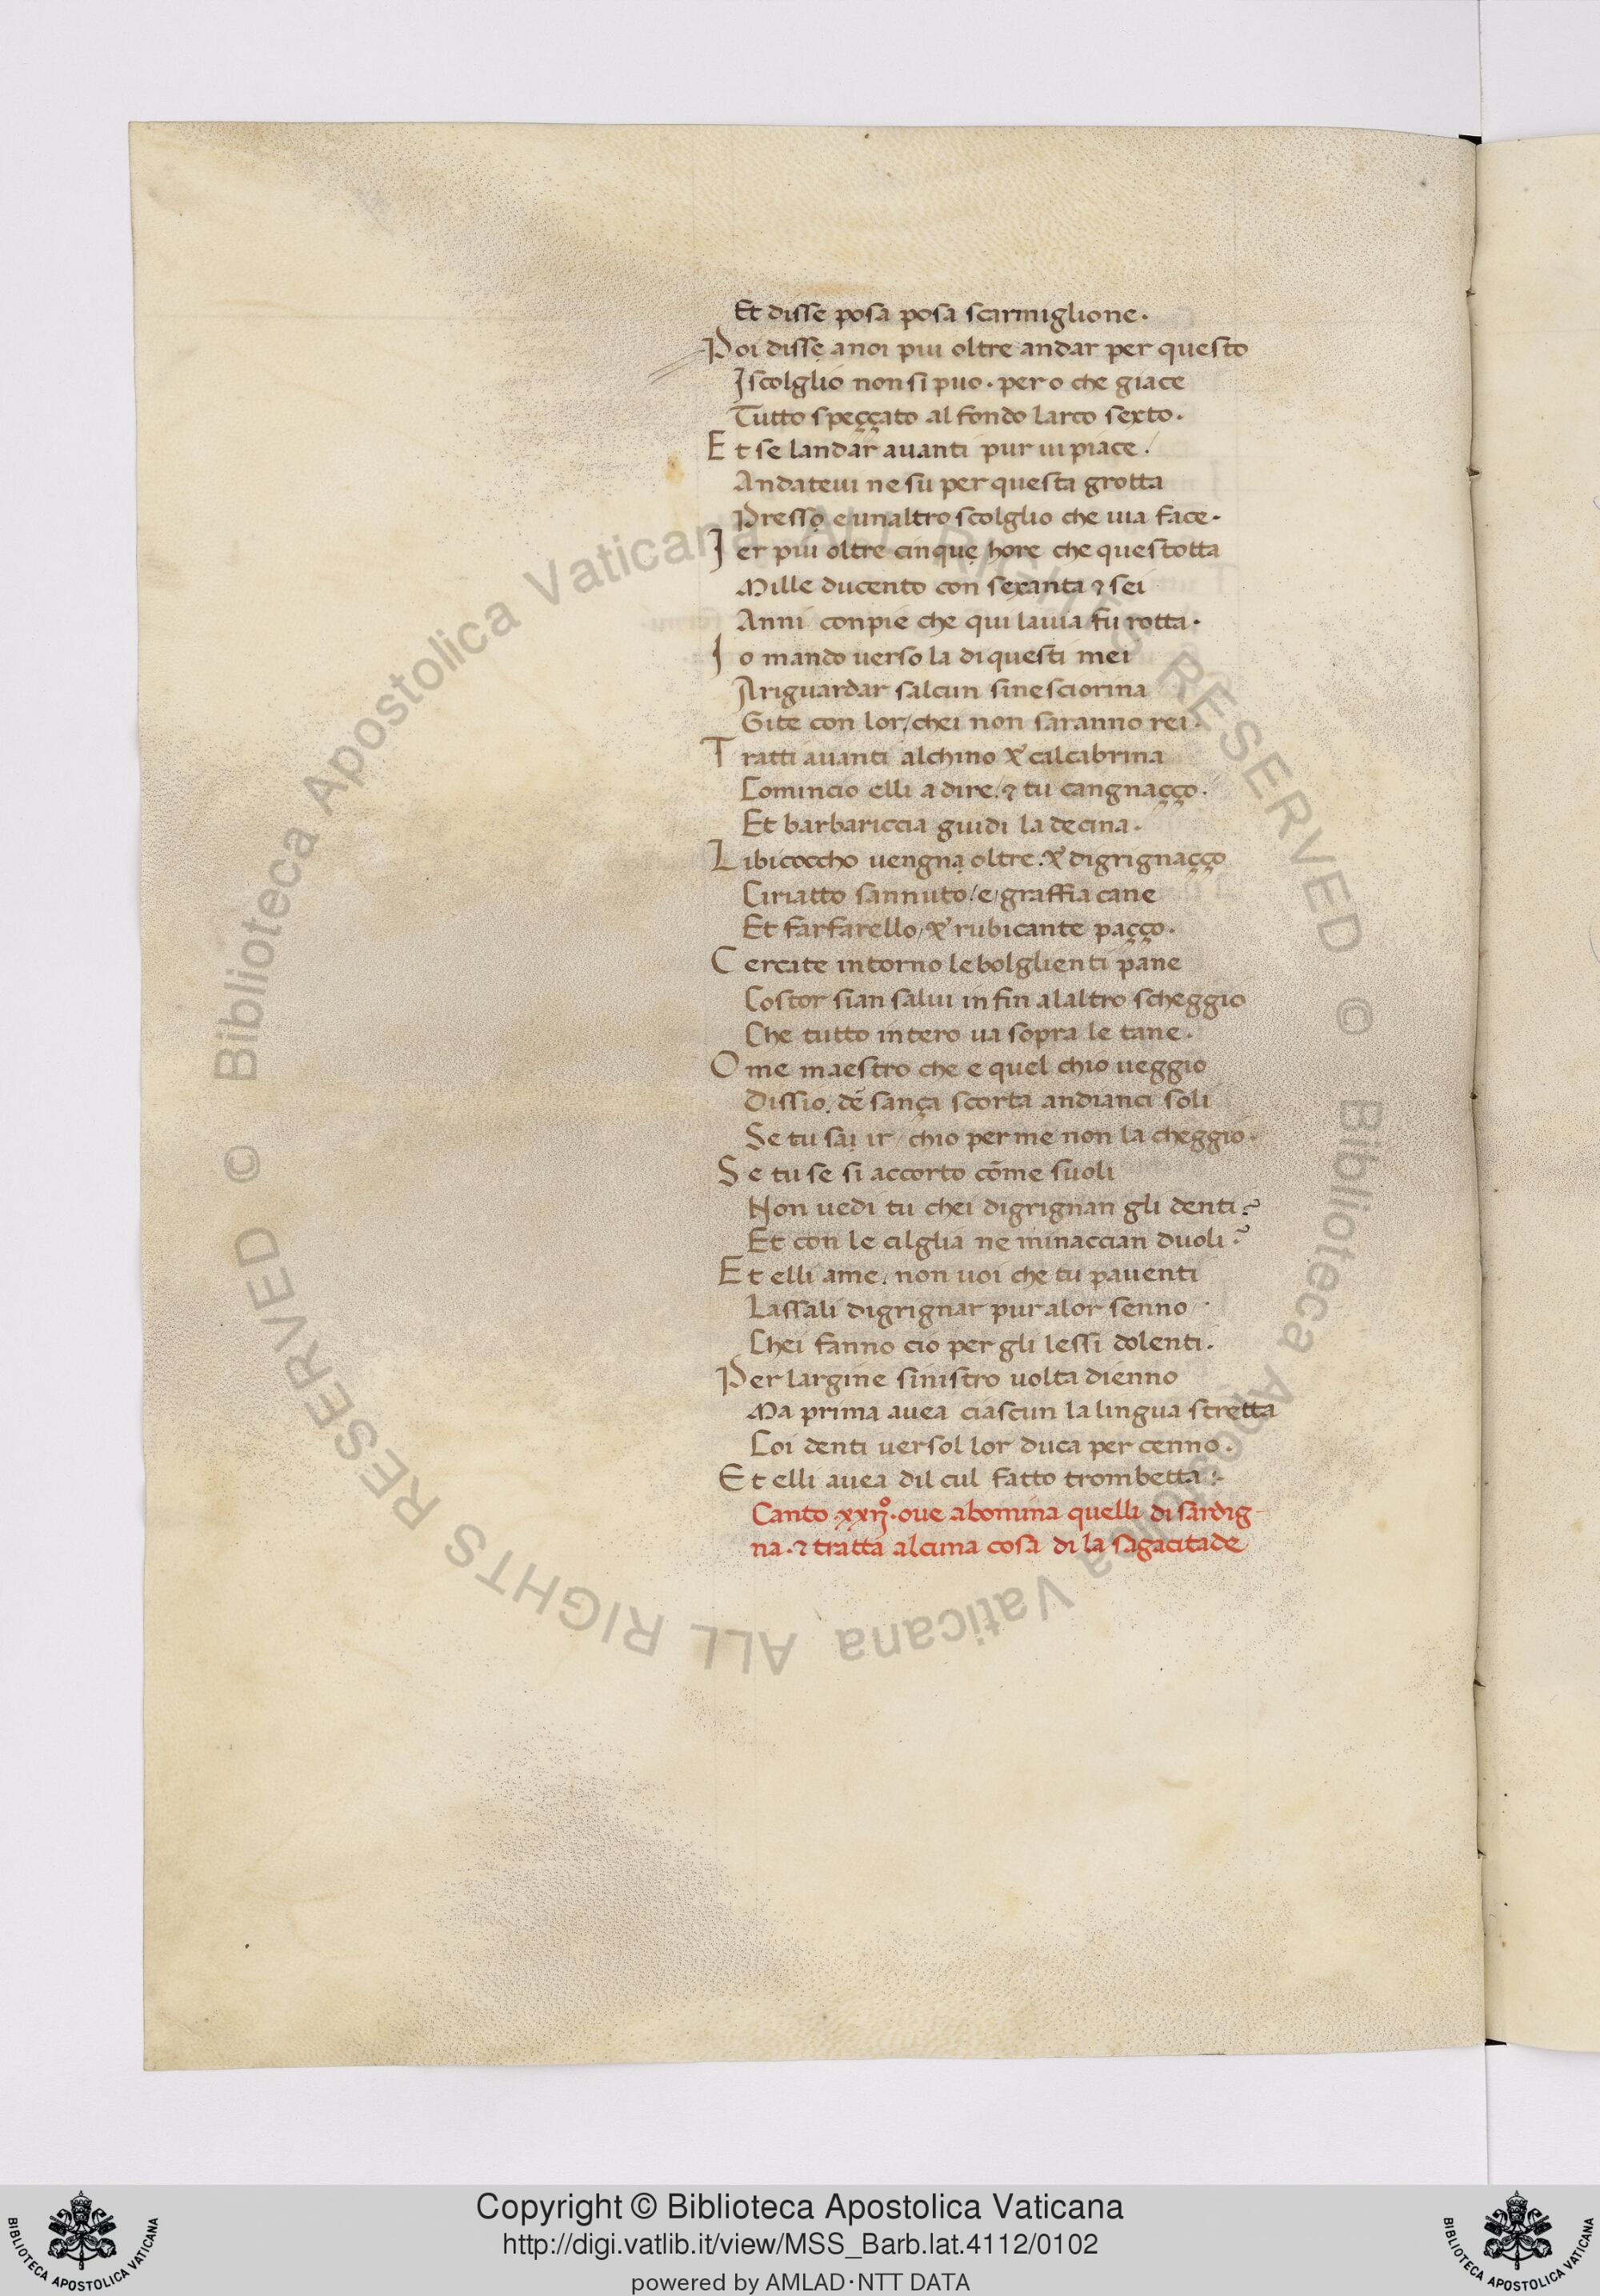 Et disse posa posa scarmiglione.
Poi disse̩ anoi piu oltre andar per questo
Iscolglio non si puo · pero che giace
Tutto speççato al fondo larco sexto.
Et se landar auanti pur ui piace /
Andateui ne su per questa grotta
Presso̩ e unaltro scolglio che uia face.
Ier piu oltre cinque̩ hore che questotta
Mille ducento con sexanta ⁊ sei
Anni conpie che qui lauia fu rotta.
Io mando uerso la di questi mei
Ariguardar salcun sinesciorina
Gite con lor/chei non saranno rei.
Tratti auanti alchino & calcabrina
Comincio elli a dire. ⁊ tu cangnaçço.
Et barbariccia guidi la decina.
Libicoccho uengna̩ oltre. & digrignaçço
Ciriatto sannuto/e/graffiacane
Et farfarello/& rubicante paçço.
Cercate intorno le bolglienti pane
Costor sian salui in fin alaltro scheggio
Che tutto intero ua sopra le tane.
Ome maestro che e quel chio ueggio
Dissio. dè sança scorta andianci soli
Se tu sai̩ ir / chio per me non la cheggio.
Se tu se si accorto cōme suoli
Non uedi tu chei digrignan gli denti?
Et con le cilglia ne minaccian duoli?
Et elli ame. non uoi che tu pauenti
Lassali digrignar pur alor senno
Chei fanno cio per gli lessi dolenti.
Per largine sinistro uolta dienno
Ma prima auea ciascun la lingua stretta
Coi denti uersol lor duca per cenno.
Et elli auea dil cul fatto trombetta :-
Canto .xxijº. oue abomina quelli di sardig-
na. ⁊ tratta alcuna cosa di la sagacitade
© Biblioteca Apostolica Vaticana ALL RIGHTS RESERVED
© Biblioteca Apostolica Vaticana ALL RIGHTS RESERVED
BIBLIOTECA APOSTOLICA VATICANA
Copyright © Biblioteca Apostolica Vaticana
http://digi.vatlib.it/view/MSS_Barb.lat.4112/0102
powered by AMLAD·NTT DATA
BIBLIOTECA APOSTOLICA VATICANA